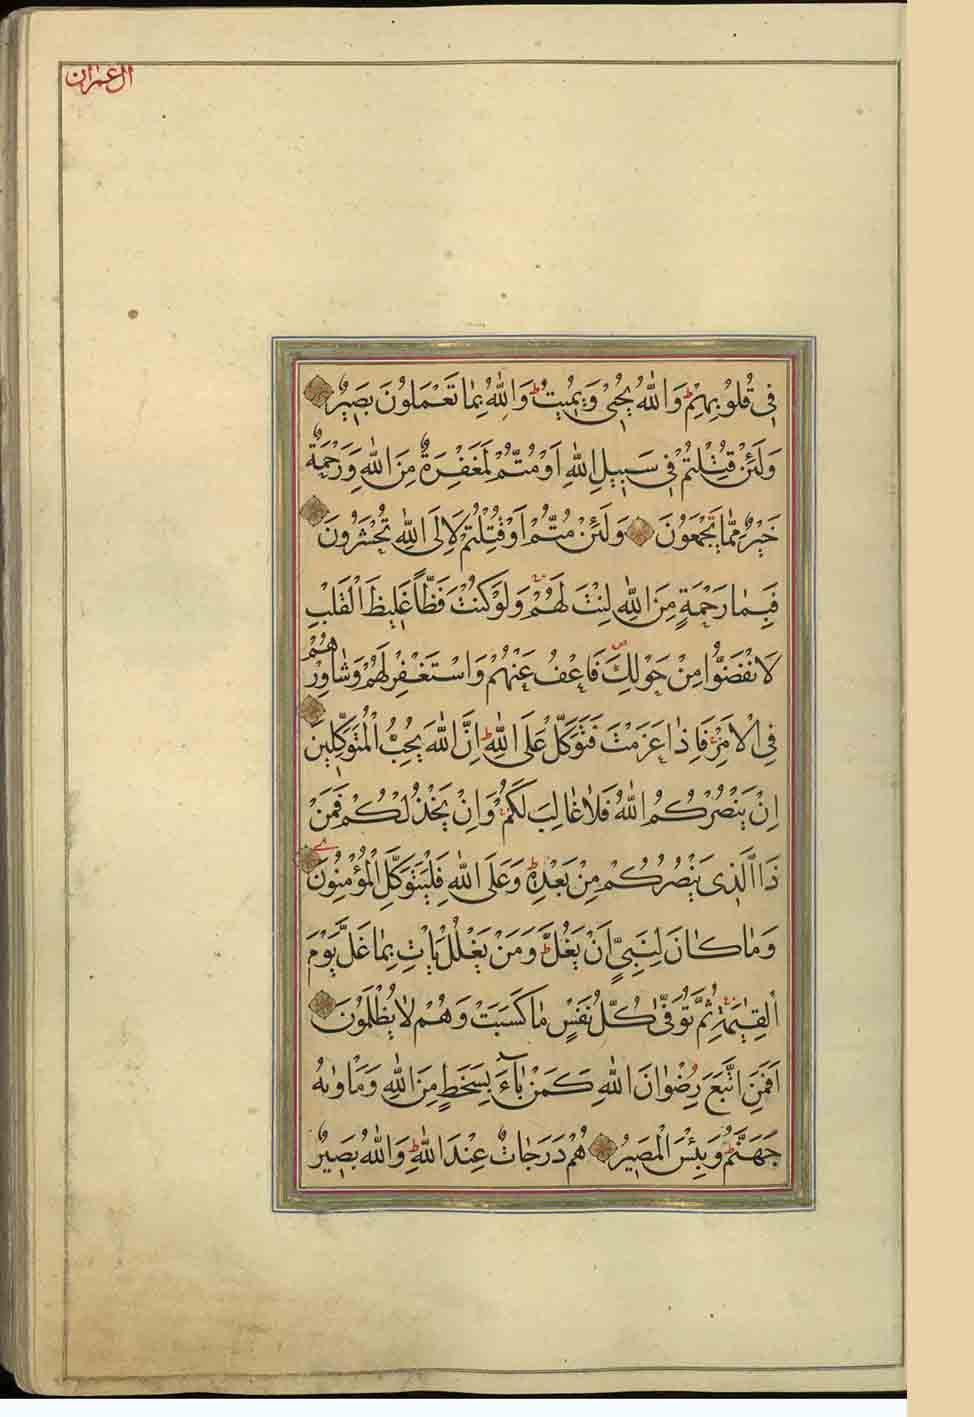 ال عمران
فِى قُلُوبِهِمْ ط وَاللّٰهُ يُحْيٖى وَيُمِيتُ ط وَاللّٰهُ بِمَا تَعْمَلُونَ بَصِيرٌ
وَلَئِنْ قُتِلْتُمْ فِى سَبِيلِ اللّٰهِ اَوْ مُتُّمْ لَمَغْفِرَةٌ مِنَ اللّٰهِ وَرَحْمَةٌ
خَيْرٌ مِمَّا يَجْمَعُونَ وَلَئِنْ مُتُّمْ اَوْ قُتِلْتُمْ لَاِلَى اللّٰهِ تُحْشَرُونَ
فَبِمَا رَحْمَةٍ مِنَ اللّٰهِ لِنْتَ لَهُمْ وَلَوْ كُنْتَ فَظًّا غَلِيظَ الْقَلْبِ
لَانْفَضُّوا مِنْ حَوْلِكَ فَاعْفُ عَنْهُمْ وَاسْتَغْفِرْ لَهُمْ وَشَاوِرْهُمْ
فِى الْاَمْرِ فَاِذَا عَزَمْتَ فَتَوَكَّلْ عَلَى اللّٰهِ ط اِنَّ اللّٰهَ يُحِبُّ الْمُتَوَكِّلِينَ
اِنْ يَنْصُرْكُمُ اللّٰهُ فَلَا غَالِبَ لَكُمْ وَاِنْ يَخْذُلْكُمْ فَمَنْ
ذَا الَّذِى يَنْصُرُكُمْ مِنْ بَعْدِهٖ ط وَعَلَى اللّٰهِ فَلْيَتَوَكَّلِ الْمُؤْمِنُونَ
وَمَا كَانَ لِنَبِىٍّ اَنْ يَغُلَّ ط وَمَنْ يَغْلُلْ يَاْتِ بِمَا غَلَّ يَوْمَ
الْقِيٰمَةِ ثُمَّ تُوَفّٰى كُلُّ نَفْسٍ مَا كَسَبَتْ وَهُمْ لَا يُظْلَمُونَ
اَفَمَنِ اتَّبَعَ رِضْوَانَ اللّٰهِ كَمَنْ بَآءَ بِسَخَطٍ مِنَ اللّٰهِ وَمَاْوٰيهُ
جَهَنَّمُ ط وَبِئْسَ الْمَصِيرُ هُمْ دَرَجَاتٌ عِنْدَ اللّٰهِ ط وَاللّٰهُ بَصِيرٌ